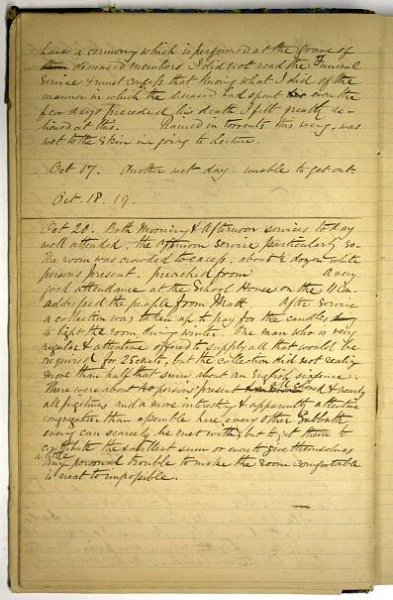 have a ceremony which is performed at the grave of
deceased members I did not read the Funeral
Service & must confess that knowing what I did of the
manner in which the deceased had spent even the
few days preceded his death I felt greatly re-
lieved at this. Rained in torrents this eveg. was
wet to the skin in going to lecture.
Oct 17. Another wet day. unable to get out.
Oct. 18. 19.
Oct 20. Both Morning & Afternoon services today
well attended, the afternoon service particularly so.
The room was crowded to excess. about ½ dozen white
persons present. preached from a very
good attendance at the School House on the
addressed the people from Matt After service
a collection was taken up to pay for the candles
to light the room during winter. One man who is very
regular & attentive offered to supply all that would be
required for 25 cents, but the collection did not realize
more than half that sum about an English sixpence.
There were about 40 persons present all colored & nearly
all fugitives and a more interesting & apparently attentive
congregation than assemble here every other Sabbath
eveng can scarcely be met with, but to get them to
contribute the smallest sum or even give themselves
a little personal trouble to make the room comfortable
is next to impossible.